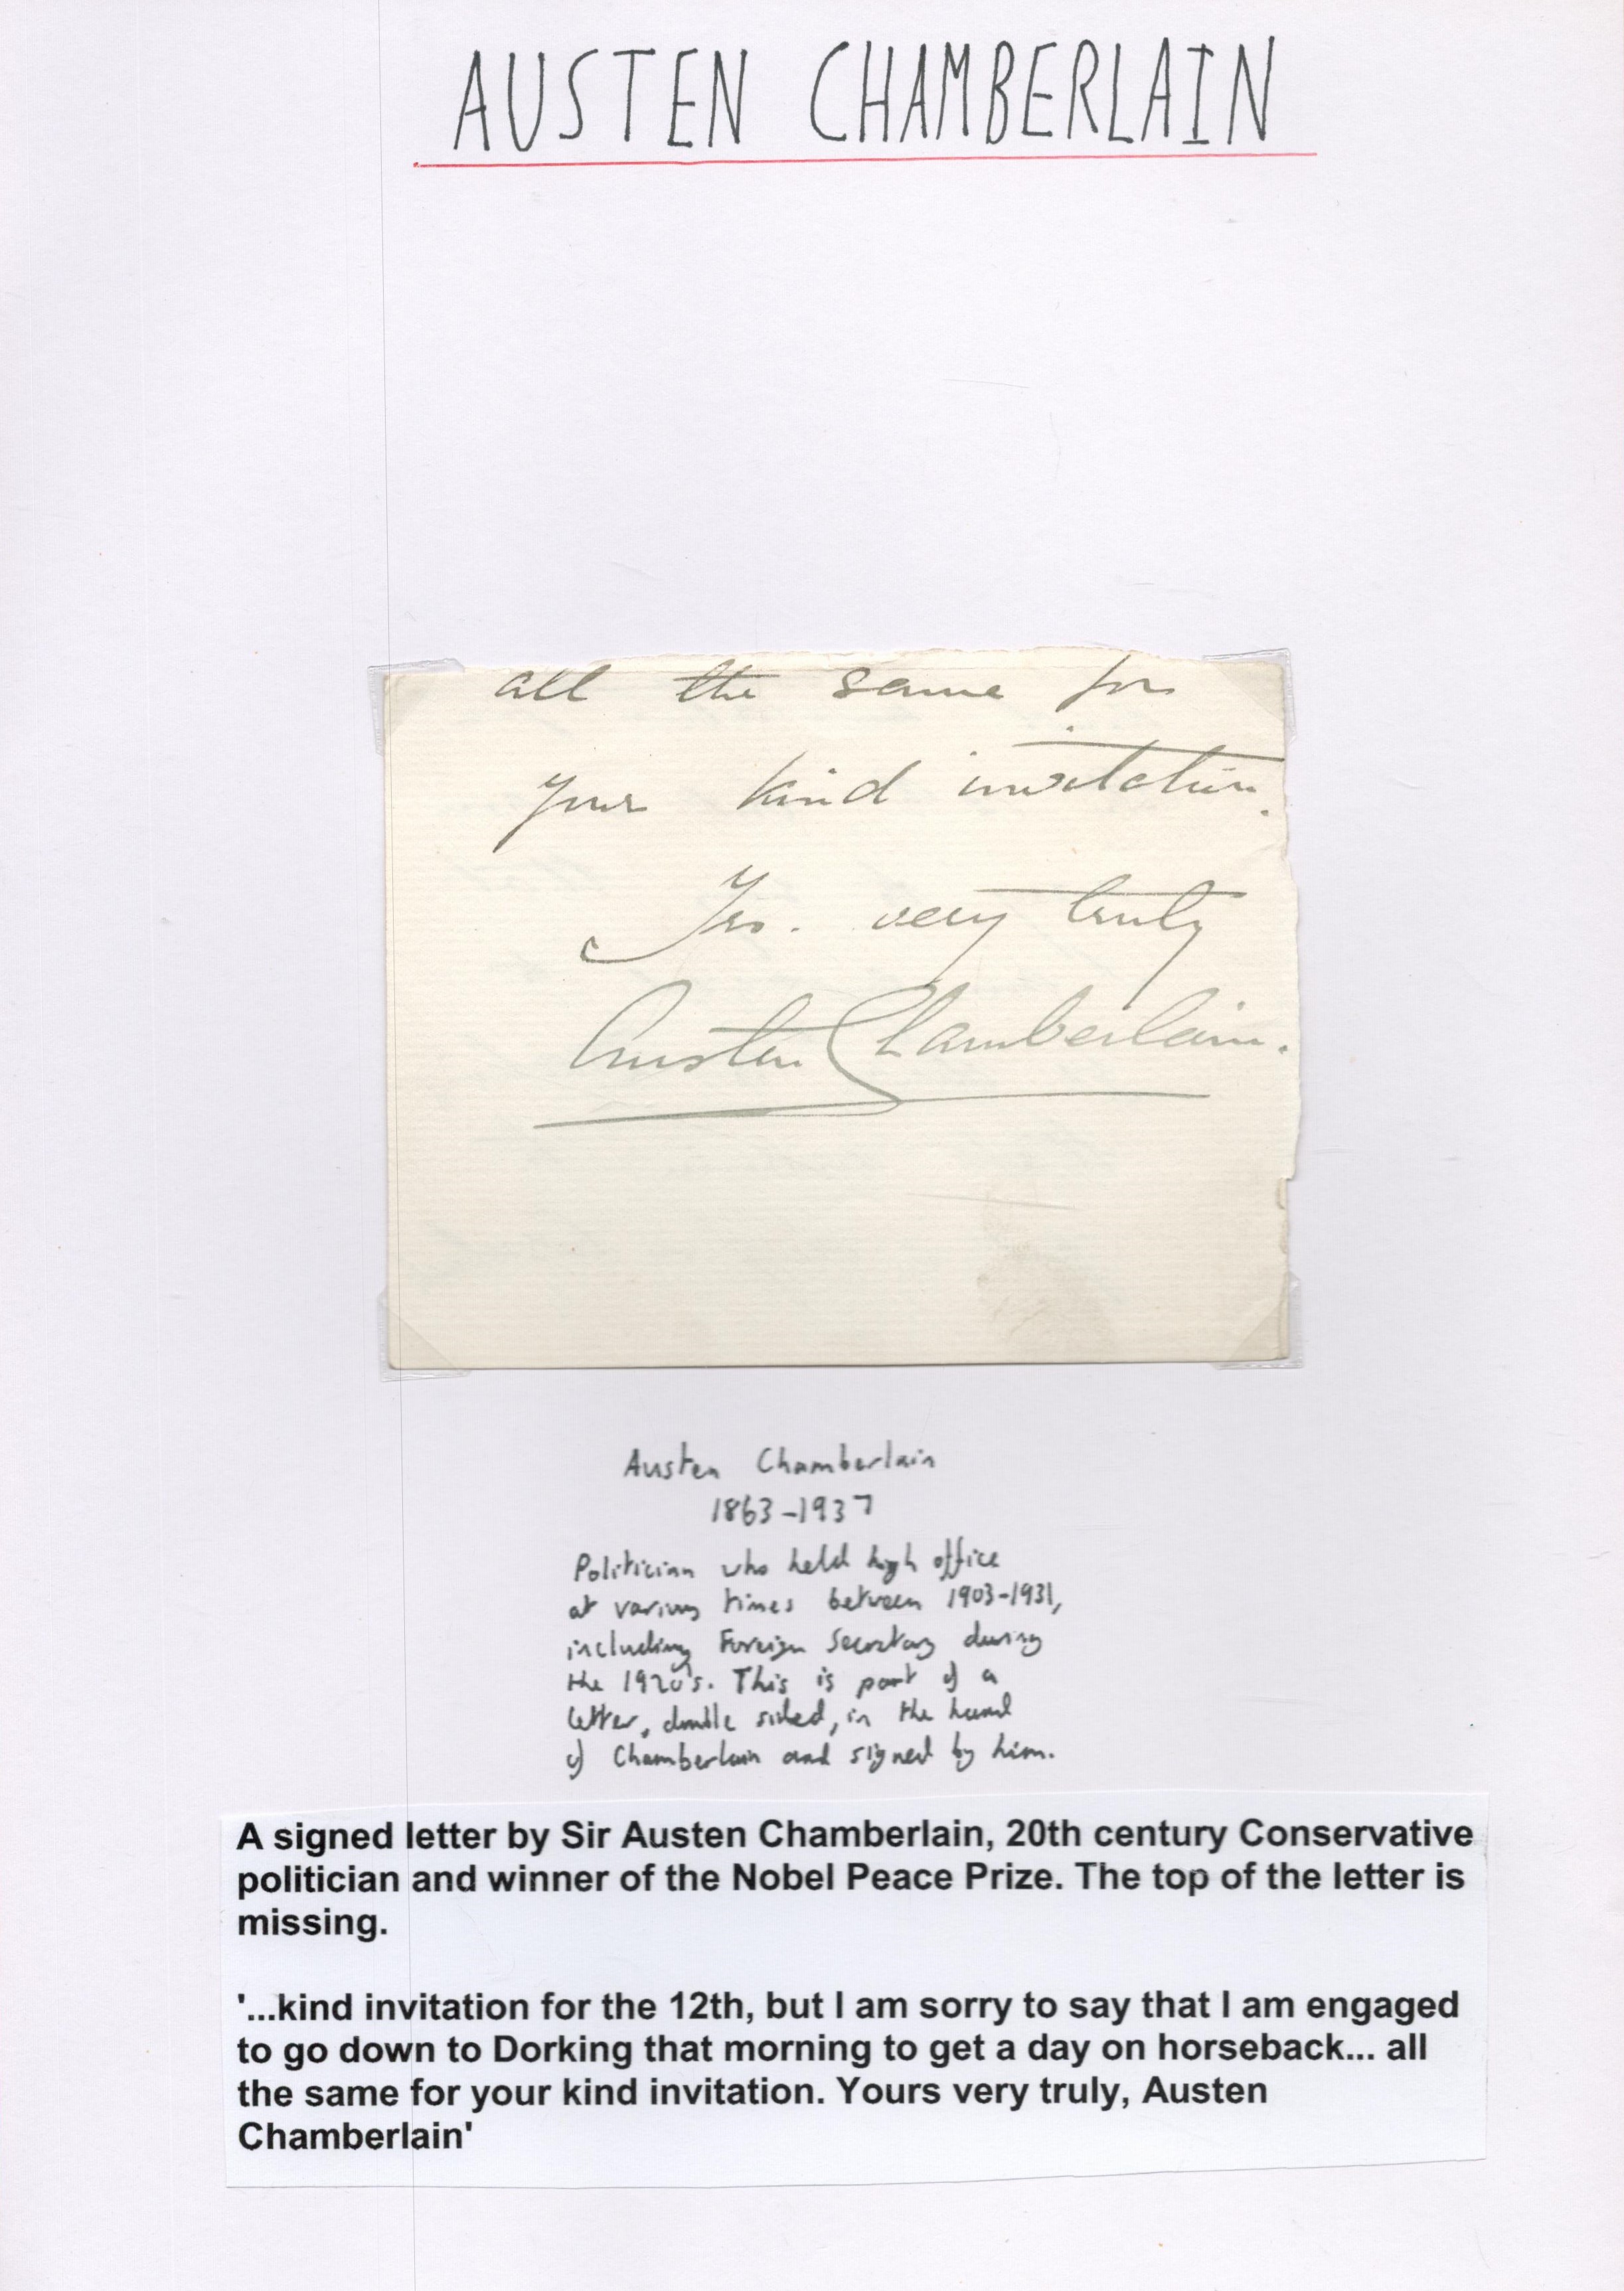 AUSTEN CHAMBERLAIN
all the same for
your kind invitation.
Yrs. very truly
Austen Chamberlain.
Austen Chamberlain
1863-1937
Politician who held high office
at various times between 1903-1931,
including Foreign Secretary during
the 1920's. This is part of a
letter, double sided, in the hand
of Chamberlain and signed by him.
A signed letter by Sir Austen Chamberlain, 20th century Conservative
politician and winner of the Nobel Peace Prize. The top of the letter is
missing.
'...kind invitation for the 12th, but I am sorry to say that I am engaged
to go down to Dorking that morning to get a day on horseback... all
the same for your kind invitation. Yours very truly, Austen
Chamberlain'